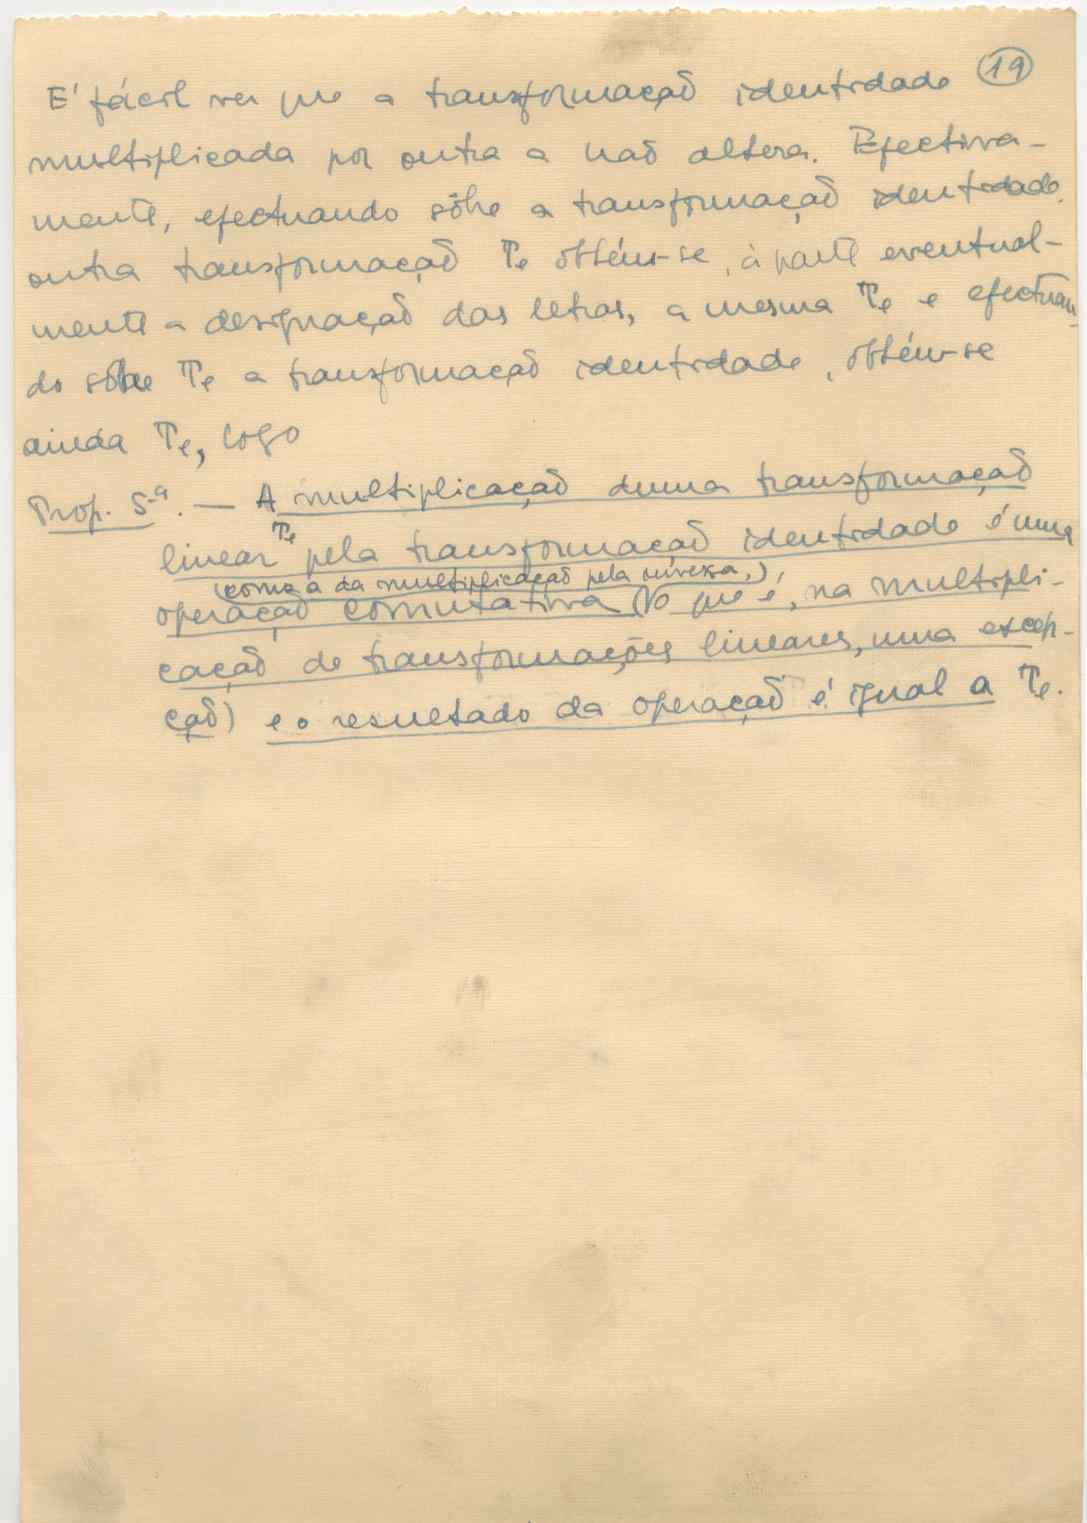 E' fácil ver que a transformação identidade (19)
multiplicada por outra a não altera. Efectiva-
mente, efectuando sôbre a transformação identidade,
outra transformação Te obtém-se, à parte eventual-
mente a designação das letras, a mesma Te e efectuan-
do sôbre Te a transformação identidade, obtém-se
ainda Te, logo
Prop. 5-ª. — A multiplicação duma transformação
linear Te pela transformação identidade é uma
(como a da multiplicação pela inversa,)
operação comutativa (o que é, na multipli-
cação de transformações lineares, uma excep-
ção) e o resultado da operação é igual a Te.